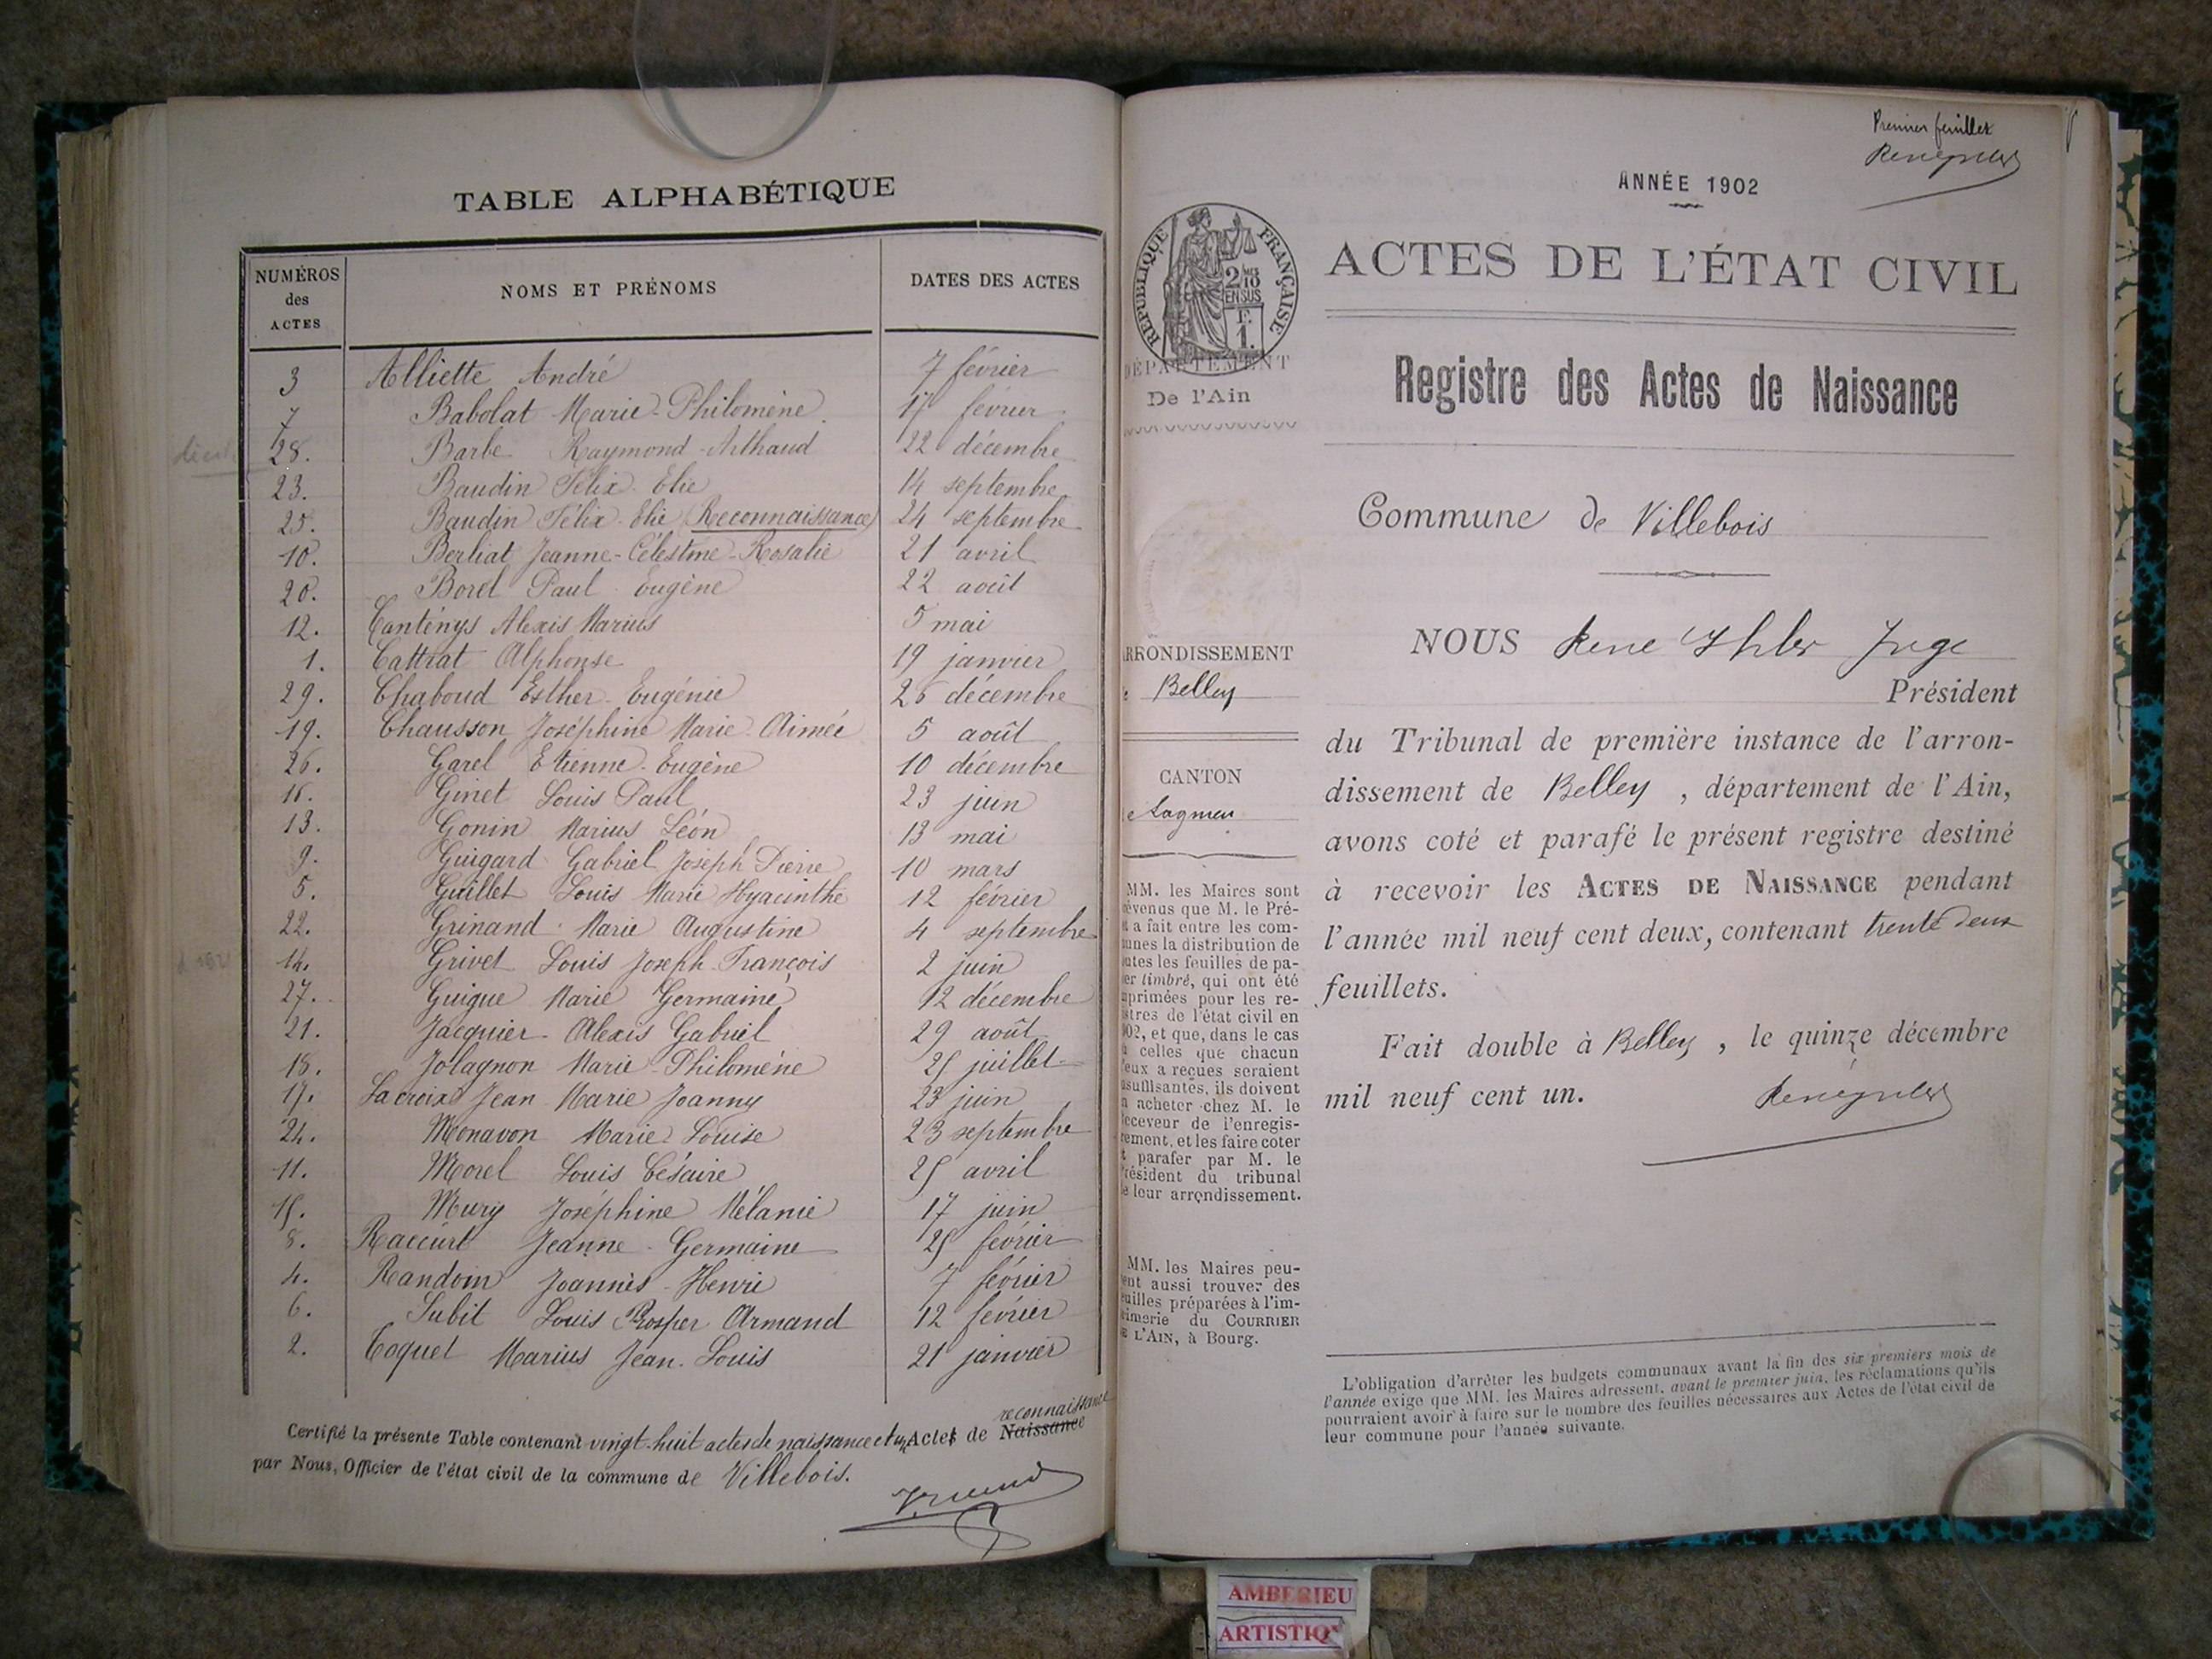 TABLE ALPHABÉTIQUE
NUMÉROS des ACTES NOMS ET PRÉNOMS DATES DES ACTES
3 Alliette André 7 février
7 Babolat Marie-Philomène 17 février
28. Barbe Raymond-Arthaud 22 décembre
23. Baudin Félix-Elie 14 septembre
25. Baudin Félix-Elie (Reconnaissance) 24 septembre
10. Berliat Jeanne-Célestine-Rosalie 21 avril
20. Borel Paul Eugène 22 août
12. Canténys Alexis Marius 5 mai
1. Cattrat Alphonse 19 janvier
29. Chaboud Esther-Eugénie 26 décembre
19. Chausson Joséphine Marie-Aimée 5 août
26. Garel Etienne-Eugène 10 décembre
16. Ginet Louis Paul 23 juin
13. Gonin Marius Léon 13 mai
9. Guigard Gabriel Joseph Pierre 10 mars
5. Guillet Louis Marie Hyacinthe 12 février
22. Grinand Marie Augustine 4 septembre
14. Grivet Louis Joseph-François 2 juin
27. Guigue Marie Germaine 12 décembre
21. Jacquier Alexis Gabriel 29 août
18. Jolagnon Marie-Philomène 25 juillet
17. Lacroix Jean-Marie Joanny 23 juin
24. Monavon Marie-Louise 23 septembre
11. Morel Louis Césaire 25 avril
15. Mury Joséphine Mélanie 17 juin
8. Raccurt Jeanne-Germaine 25 février
4. Randoin Joannès-Henri 7 février
6. Subit Louis Prosper Armand 12 février
2. Coquet Marius Jean-Louis 21 janvier
reconnaissance
Certifié la présente Table contenant vingt-huit actes de naissance et un Actes de Naissance
par Nous, Officier de l'état civil de la commune de Villebois.
Premier feuillet
ANNÉE 1902
RÉPUBLIQUE FRANÇAISE
2/10 EN SUS
F. 1.
DÉPARTEMENT
De l'Ain
ARRONDISSEMENT
Belley
CANTON
MM. les Maires sont
évenus que M. le Pré-
t a fait entre les com-
unes la distribution de
utes les feuilles de pa-
er timbré, qui ont été
primées pour les re-
stres de l'état civil en
02, et que, dans le cas
celles que chacun
eux a reçues seraient
suffisantes, ils doivent
acheter chez M. le
eceveur de l'enregis-
rement, et les faire coter
t parafer par M. le
résident du tribunal
e leur arrondissement.
MM. les Maires peu-
ent aussi trouver des
uilles préparées à l'im-
rimerie du COURRIER
E L'AIN, à Bourg.
ACTES DE L'ÉTAT CIVIL
Registre des Actes de Naissance
Commune de Villebois
NOUS René Ihler Juge
Président
du Tribunal de première instance de l'arron-
dissement de Belley , département de l'Ain,
avons coté et parafé le présent registre destiné
à recevoir les ACTES DE NAISSANCE pendant
l'année mil neuf cent deux, contenant trente deux
feuillets.
Fait double à Belley , le quinze décembre
mil neuf cent un.
L'obligation d'arrêter les budgets communaux avant la fin des six premiers mois de
l'année exige que MM. les Maires adressent, avant le premier juin, les réclamations qu'ils
pourraient avoir à faire sur le nombre des feuilles nécessaires aux Actes de l'état civil de
leur commune pour l'année suivante.
AMBERIEU
ARTISTIQ